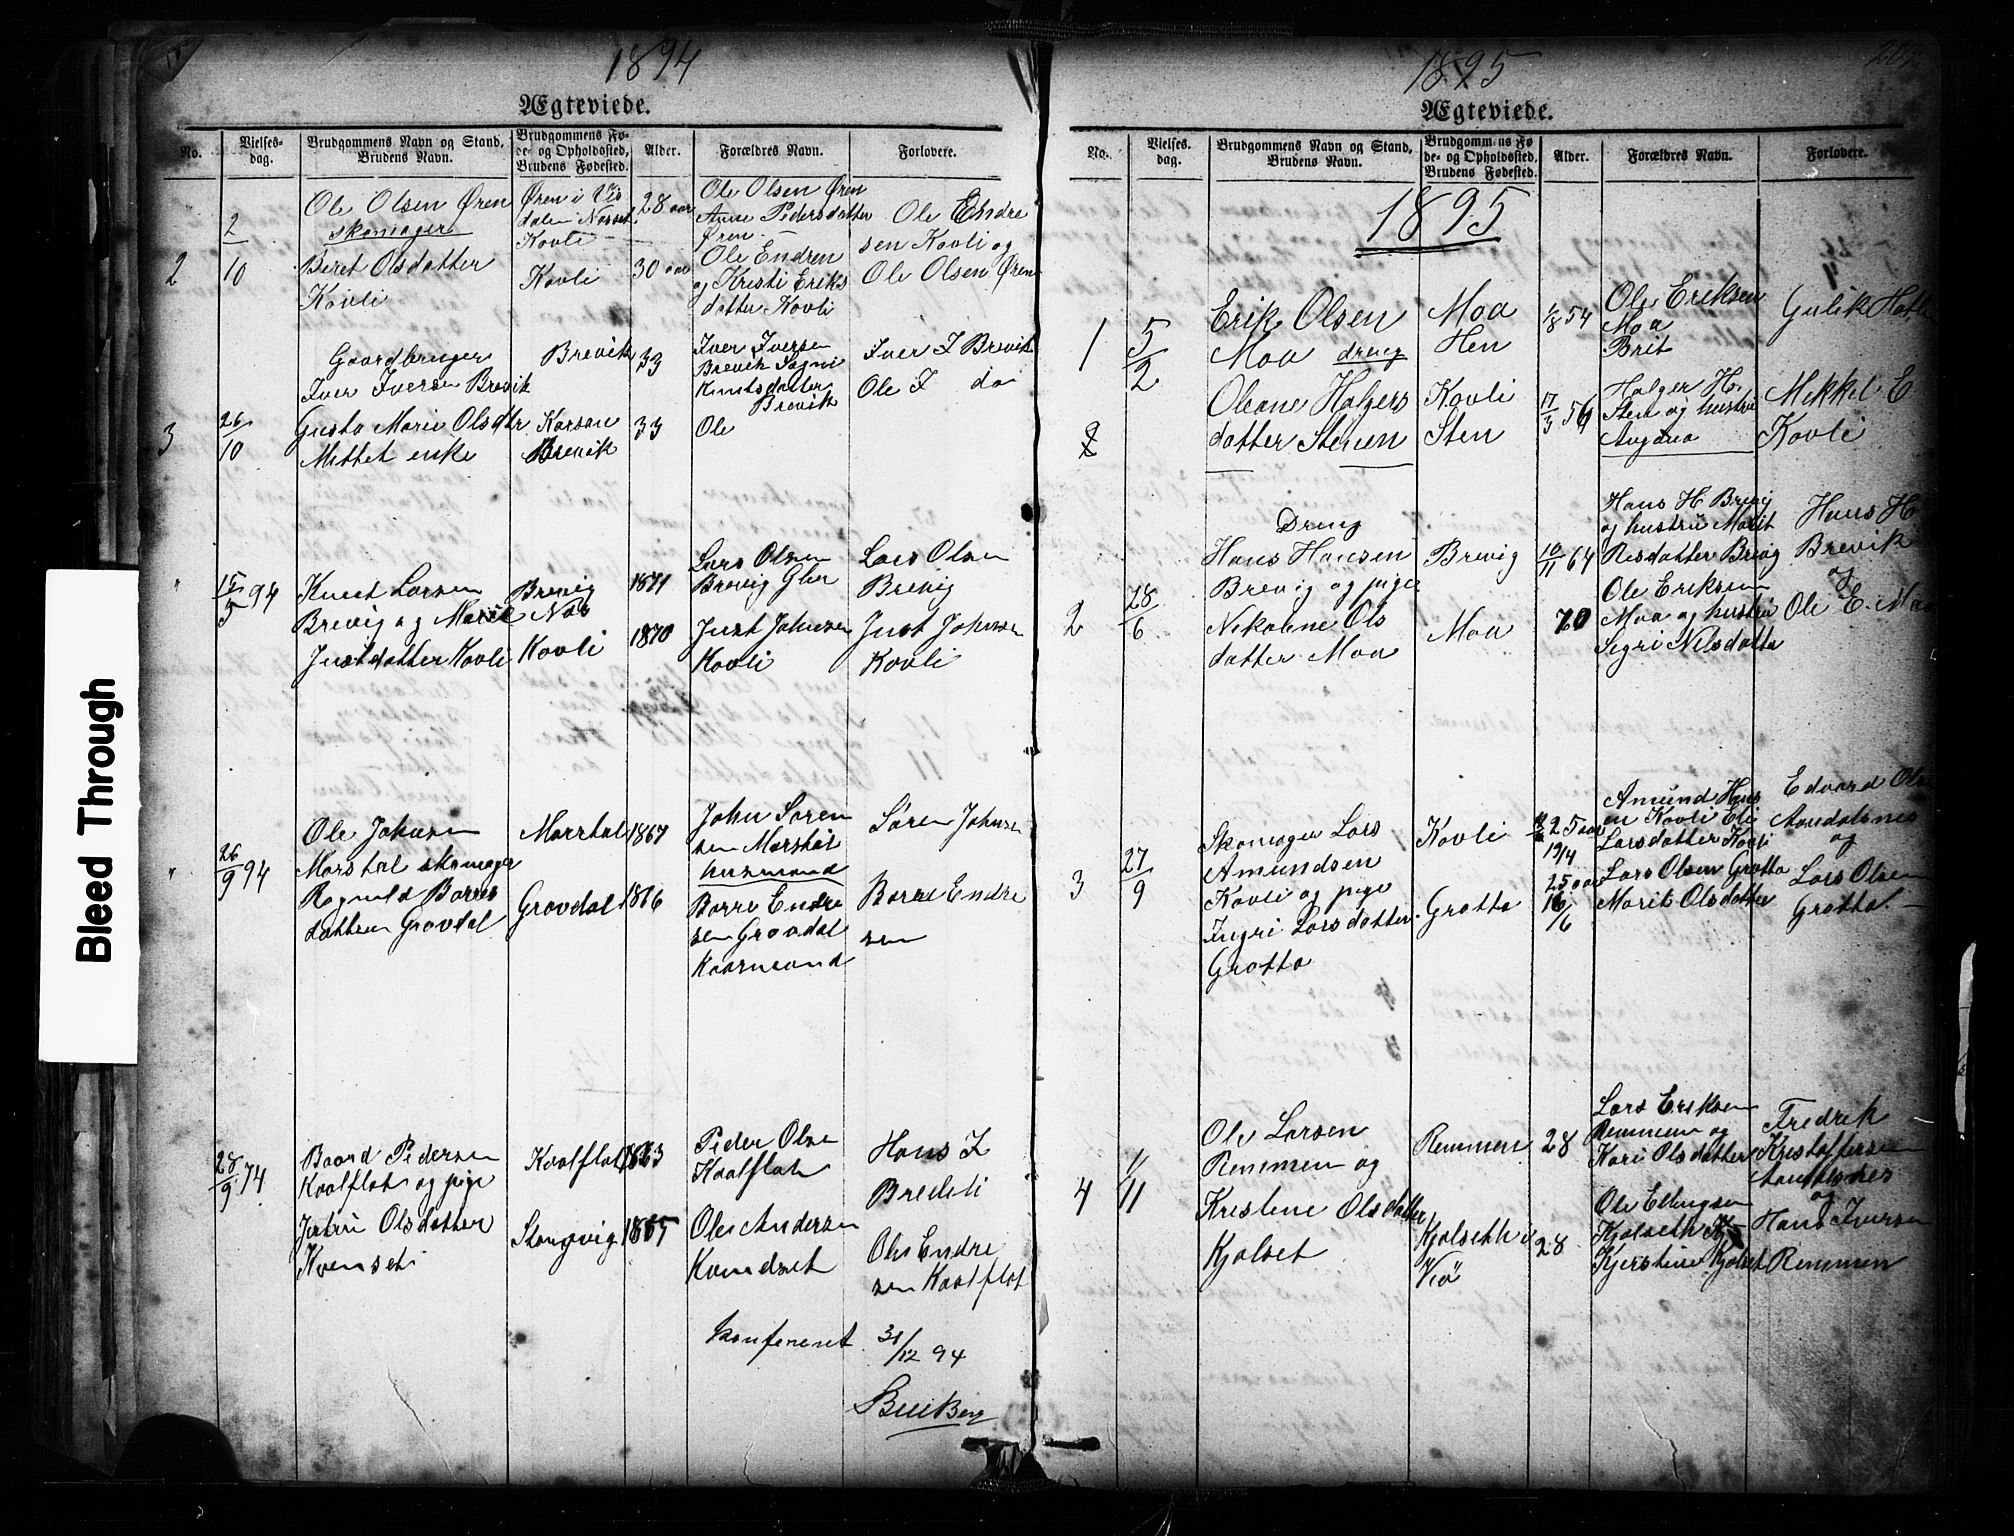 Bleed Through
1894
Ægteviede.
No.
Vielses-
dag.
Brudgommens Navn og Stand,
Brudens Navn.
Brudgommens Fø-
de- og Opholdssted,
Brudens Fødested.
Alder.
Forældres Navn.
Forlovere.
2
2
10
Ole Olsen Øren
skomager
Beret Olsdatter
Kovli
Øren i Vis
dalen Nesset
Kovli
Kovli
28 aar
30 aar
Ole Olsen Øren
Anne Pedersdatter
Øren
Ole Endren
og Kristi Eriks
datter Kovli
Ole Endre
sen Kovli og
Ole Olsen Øren
3
26
10
Gaardbruger
Iver Iversen Brevik
Gusta Marie Olsdtr
Mittet enke
Brevik
Brevik
33
33
Iver Iversen
Brevik
Knutsdatter
Brevik
Ole
Iver I Brevik
Ole I do
"
15
5 94
Knut Larsen
Brevig og Marit
Justdatter Kovli
Brevig
Kovli
1871
1870
Lars Olsen
Brevig
Just Johnsen
Kovli
Lars Olsen
Brevig
Just Johnsen
Kovli
"
26
9 94
Ole Johnsen
Marstal skomager
Ragnild Barres
datten Gravdal
Marstal
Gravdal
1867
1866
John Søren
sen Marstal
husmand
Barre Endre
sen Gravdal
Kaarmand
Søren Johnsen
Barre Endre
sen
28
9 74
Baard Pedersen
Kaalflat og pige
Olsdatter
Kvenset
Kaalflat
1863
1865
Peder Olsen
Kaalflat
Ole Andersen
Kvendset
Hans I
Bredeli
Ole Endre
sen Kaalflat
Konfereret 31/12 94
1895
Ægteviede.
No.
Vielses-
dag.
Brudgommens Navn og Stand,
Brudens Navn.
Brudgommens Fø-
de- og Opholdssted,
Brudens Fødested.
Alder.
Forældres Navn.
Forlovere.
1895
1
5
2
Erik Olsen
Moa dreng
Oleane Holgers
datter Stenen
Moa
Hen
Kovli
Sten
1/8 54
17/3 56
Ole Eriksen
Moa
Brit
Holger H.
Sten og hustru
Gulik
Mikkel E
Kovli
2
2
28
6
Dreng
Hans Hansen
Brevig og pige
Nikoline Ols
datter Moa
Brevig
Moa
10/11 64
70
Hans H Brevig
og hustru Marit
Brevig
Ole Eriksen
Moa og hustru
Segri Nilsdatter
Hans H
Brevik
og
Ole E. Moa
3
27
9
Skomager Lars
Amundsen
Kovli og pige
Ingri Larsdatter
Grøtta
Kovli
Grøtta
25 aar
19/4
25 aar
16/6
Amund Hans
en Kovli Eli
Larsdatter Kovli
Lars Olsen Grøtta
Marit Olsdatter
Edvard Ols
Aandalsnes
og
Lars Olsen
Grøtta
4
1/11
Ole Larsen
Remmen og
Kristine Olsdatter
Kjølset
Remmen
Kjølseth i
Veø
28
28
Lars Eriksen
Remmem og
Kari Olsdatter
Ole Ellingsen
Kjølseth
Kjerstine Kjølset
Fredrik
Kristoffersen
Aandalsnes
og
Hans Iversen
Remmen